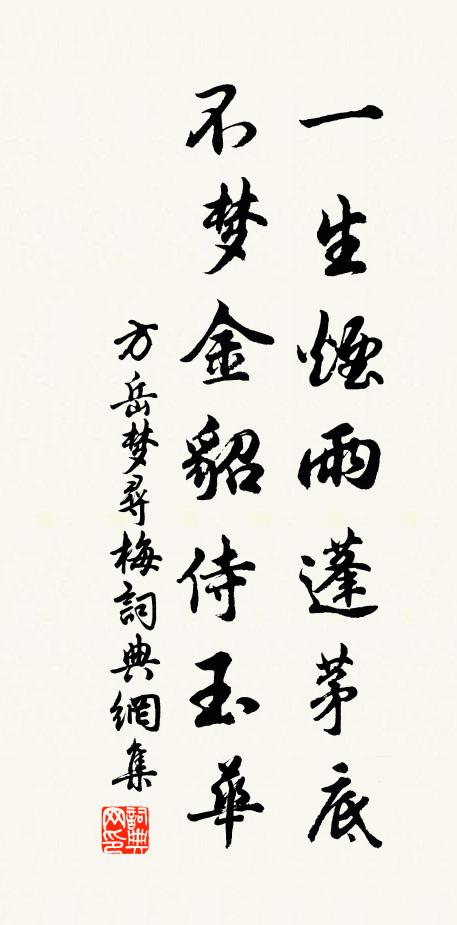 一生煙雨蓬茅底
不梦金貂侍玉華
方岳梦尋梅詞典網集
詞典网印